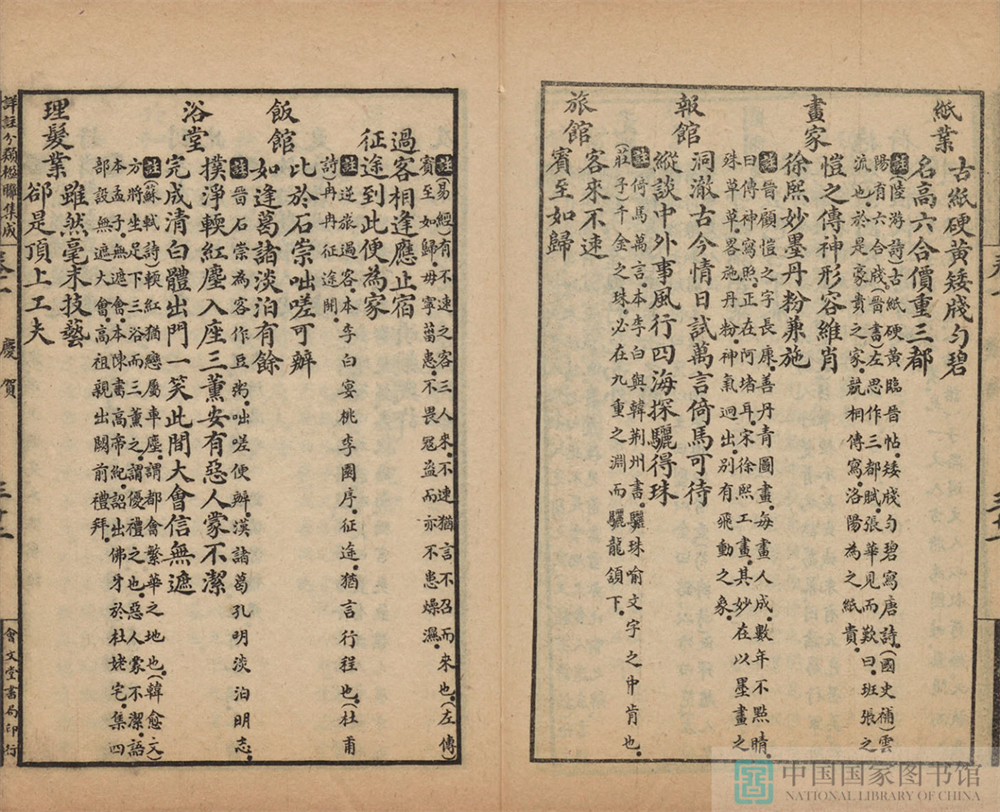 紙業
古紙硬黃矮牋勻碧
名高六合價重三都
註陸游詩古紙硬黃臨晉帖矮牋勻碧寫唐詩(國史補)雲
陽有六合牋(晉書)左思作三都賦張華見而歎曰班張之
流也於是豪貴之家競相傳寫洛陽為之紙貴
畫家
愷之傳神形容維肖
徐熙妙墨丹粉兼施
註晉顧愷之字長康善丹青圖畫每畫人成數年不點睛
曰傳神寫照正在阿堵耳宋徐熙工畫其妙在以墨畫之
殊草草畧施丹粉神氣迥出別有飛動之象
報館
洞澈古今情日試萬言倚馬可待
縱談中外事風行四海探驪得珠
註倚馬萬言本李白與韓荊州書驪珠喻文字之中肯也
(莊子)千金之珠必在九重之淵而驪龍頷下
旅館
客來不速
賓至如歸
註易經有不速之客三人來不速猶言不召而來也(左傳)
賓至如歸毋寧菑患不畏寇盜而亦不患燥濕
過客相逢應止宿
征途到此便為家
註逆旅過客本李白宴桃李園序征途猶言行程也(杜甫
詩)冉冉征途開
飯館
比於石崇咄嗟可辦
如逢葛諸淡泊有餘
註晉石崇為客作豆粥咄嗟便辦漢諸葛孔明淡泊明志
浴堂
撲淨輭紅塵入座三薰安有惡人蒙不潔
完成清白體出門一笑此間大會信無遮
註蘇軾詩輭紅猶戀屬車塵謂都會繁華之地也(韓愈文)
方將坐足下三浴而三薰之謂優禮之也惡人蒙不潔語
本孟子無遮會本陳書高帝紀詔出佛牙於杜姥宅集四
部設無遮大會高祖親出闕前禮拜
理髮業
雖然毫末技藝
卻是頂上工夫
詳註分類楹聯集成
慶賀
三十二
會文堂書局印行
中国国家图书馆
NATIONAL LIBRARY OF CHINA